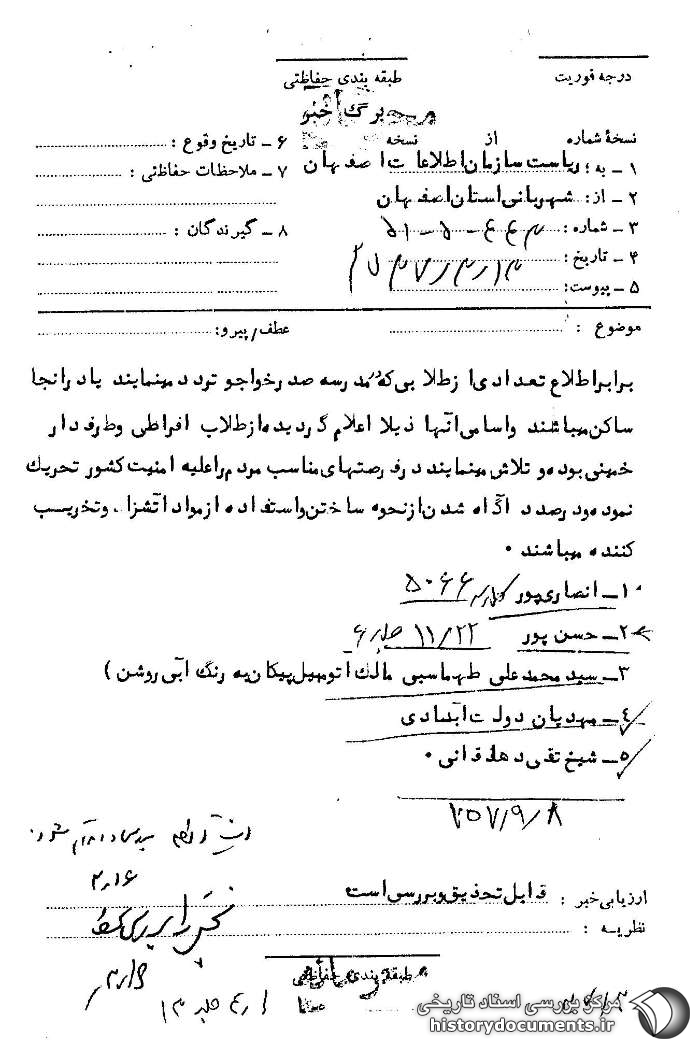 درجه فوریت
طبقه بندی حفاظتی
برگ خبر
نسخهٔ شماره از نسخه
۱ ـ به : ریاست سازمان اطلاعات اصفهان
۲ ـ از: شهربانی استان اصفهان
۳ ـ شماره: ۵۱-۵-۴۴۳
۴ ـ تاریخ:
۵ ـ پیوست:
۶ ـ تاریخ وقوع :
۷ ـ ملاحظات حفاظتی :
۸ ـ گیرندگان :
موضوع :
عطف/پیرو:
برابر اطلاع تعدادی از طلابی که مدرسه صدر خواجو تردد مینمایند یا در انجا
ساکن میباشند واسامی آنها ذیلا اعلام گردیده از طلاب افراطی وطرفدار
خمینی بوده و تلاش مینمایند در فرصتهای مناسب مردم را علیه امنیت کشور تحریک
نموده ودرصدد آگاه شدن از نحوه ساختن واستفاده از مواد آتشزا ـ وتخریب
کننده میباشند .
۱ـ انصاری پور ۵۰۶۶
۲ـ حسن پور ۱۱/۲۲
۳ـ سید محمد علی طهماسبی مالک اتومبیل پیکان به رنگ آبی روشن )
۴ـ مهدیان دولت آبادی
۵ـ شیخ تقی دهاقانی .
۷۵۷/۹/۸
ارزیابی خبر : قابل تحقیق وبررسی است
نظریه :
طبقه بندی حفاظتی
مرکز بررسی اسناد تاریخی
historydocuments.ir